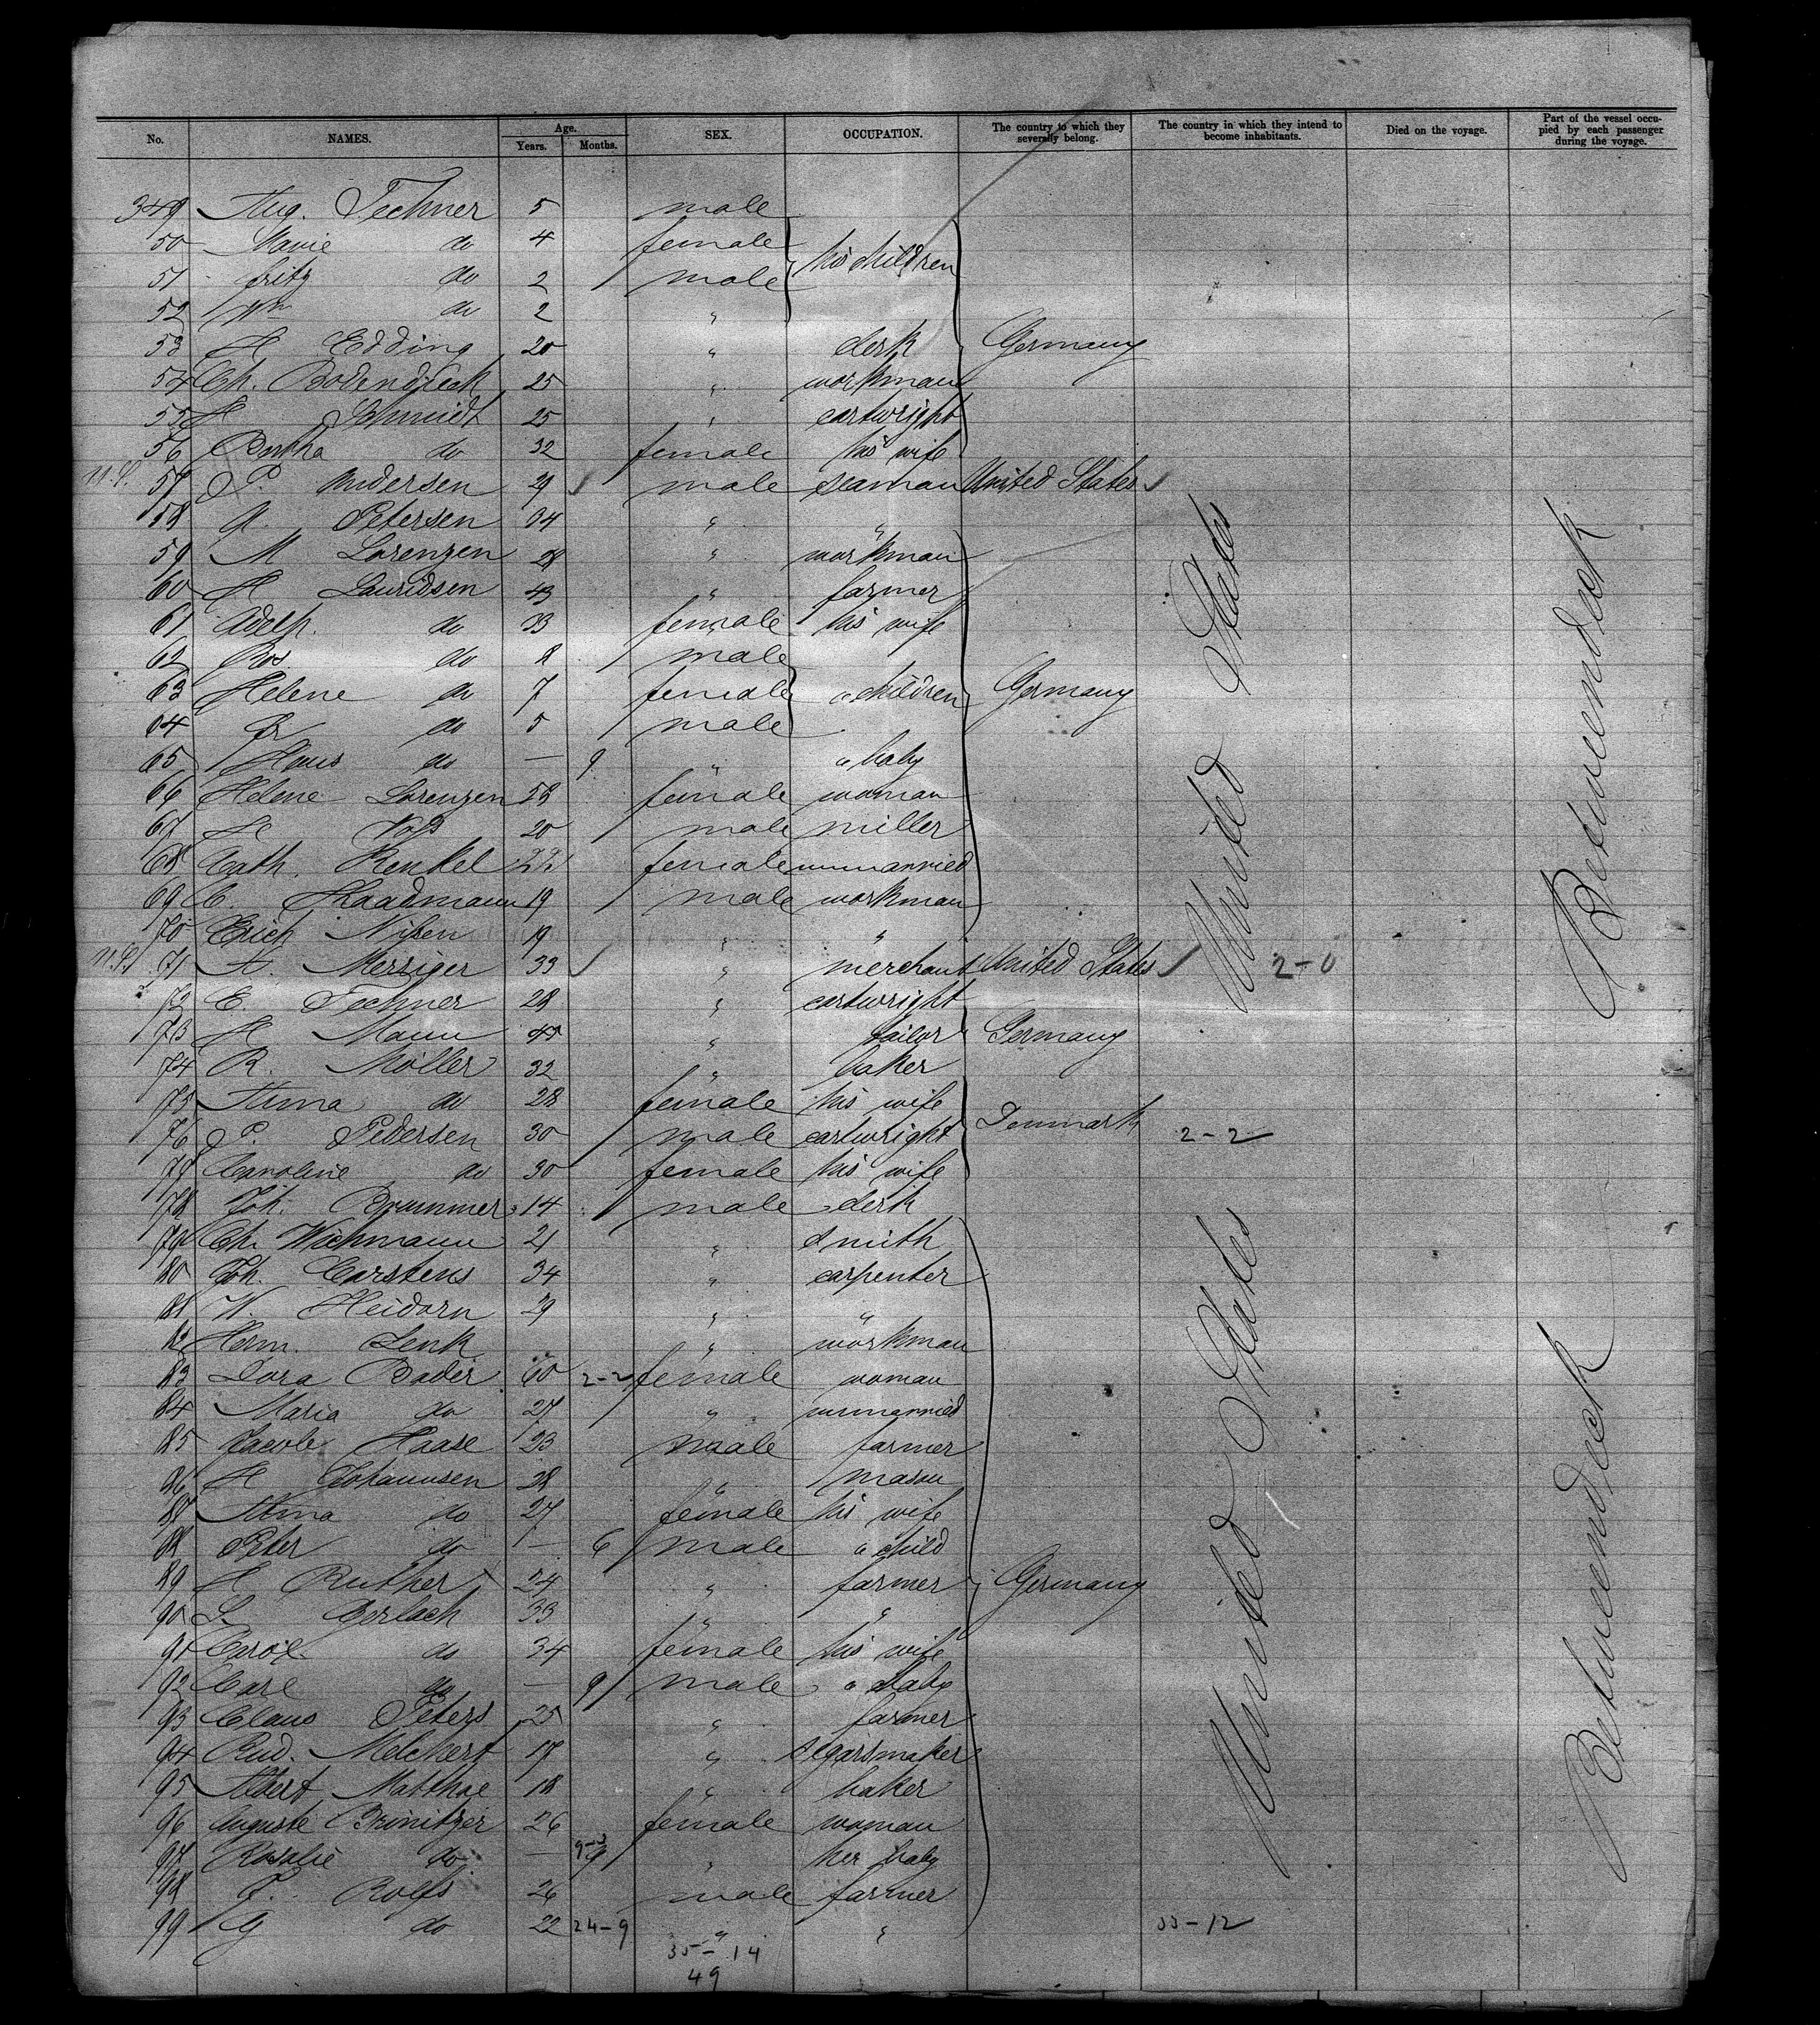 No. NAMES. Age. Years. Months. SEX. OCCUPATION. The country to which they severally belong. The country in which they intend to become inhabitants. Died on the voyage. Part of the vessel occupied by each passenger during the voyage.
349 Aug. Techner 5 male
50 Marie do 4 female
51 Fritz do 2 male his children
52 Wm do 2 "
53 H Edding 20 " clerk Germany
54 Ch. Bodendieck 25 " workman
55 H Schmidt 25 " cartwright
56 Bertha do 32 female his wife
57 J P. Andersen 29 male seaman United States
58 Petersen 34 " "
59 M Lorenzen 28 " workman
60 H Lauridsen 43 " farmer
61 Adelh. do 33 female his wife
62 do 8 male
63 Helene do 7 female " children Germany
64 Fr do 5 male
65 Hans do — 9 " " baby
66 Helene Lorenzen 58 female woman
67 H Voss 20 male miller
68 Cath. Renkel 22 female unmarried
69 C. Haadmann 19 male workman
70 Erich Nissen 19 " "
71 A. Mersiger 33 " merchant United States 2-0
72 E. Techner 28 " cartwright
73 H Mann 45 " tailor Germany
74 R. Möller 32 " baker
75 Anna do 28 female his wife
76 J P. Pedersen 30 male cartwright Denmark 2-2
77 Caroline do 30 female his wife
78 Joh. Brammer 14 male clerk
79 Ch. Wichmann 21 " smith
80 Joh. Carstens 34 " carpenter
81 W. Heidorn 29 " "
82 Herm. Lenk " workman
83 Dora Bader 60 2-2 female woman
84 Maria do 27 " unmarried
85 Jacob Haase 23 male farmer
86 H Johannsen 28 " mason
87 Anna do 27 female his wife
88 Peter do — 6 male " child
89 H Ruther 24 " farmer Germany
90 L. Gerlach 33 " "
91 Carol. do 34 female his wife
92 Carl do — 9 male " baby
93 Claus Peters 25 " farmer
94 Rud. Melchert 17 " segarsmaker
95 Albert Matthae 18 " baker
96 Auguste Brinitzer 26 female woman
97 Rosalie do — 9 " her baby
98 F. Rolfs 26 male farmer
99 G do 22 24-9 " " 33-12
35-14
49
United States
United States
Betweendeck
Betweendeck